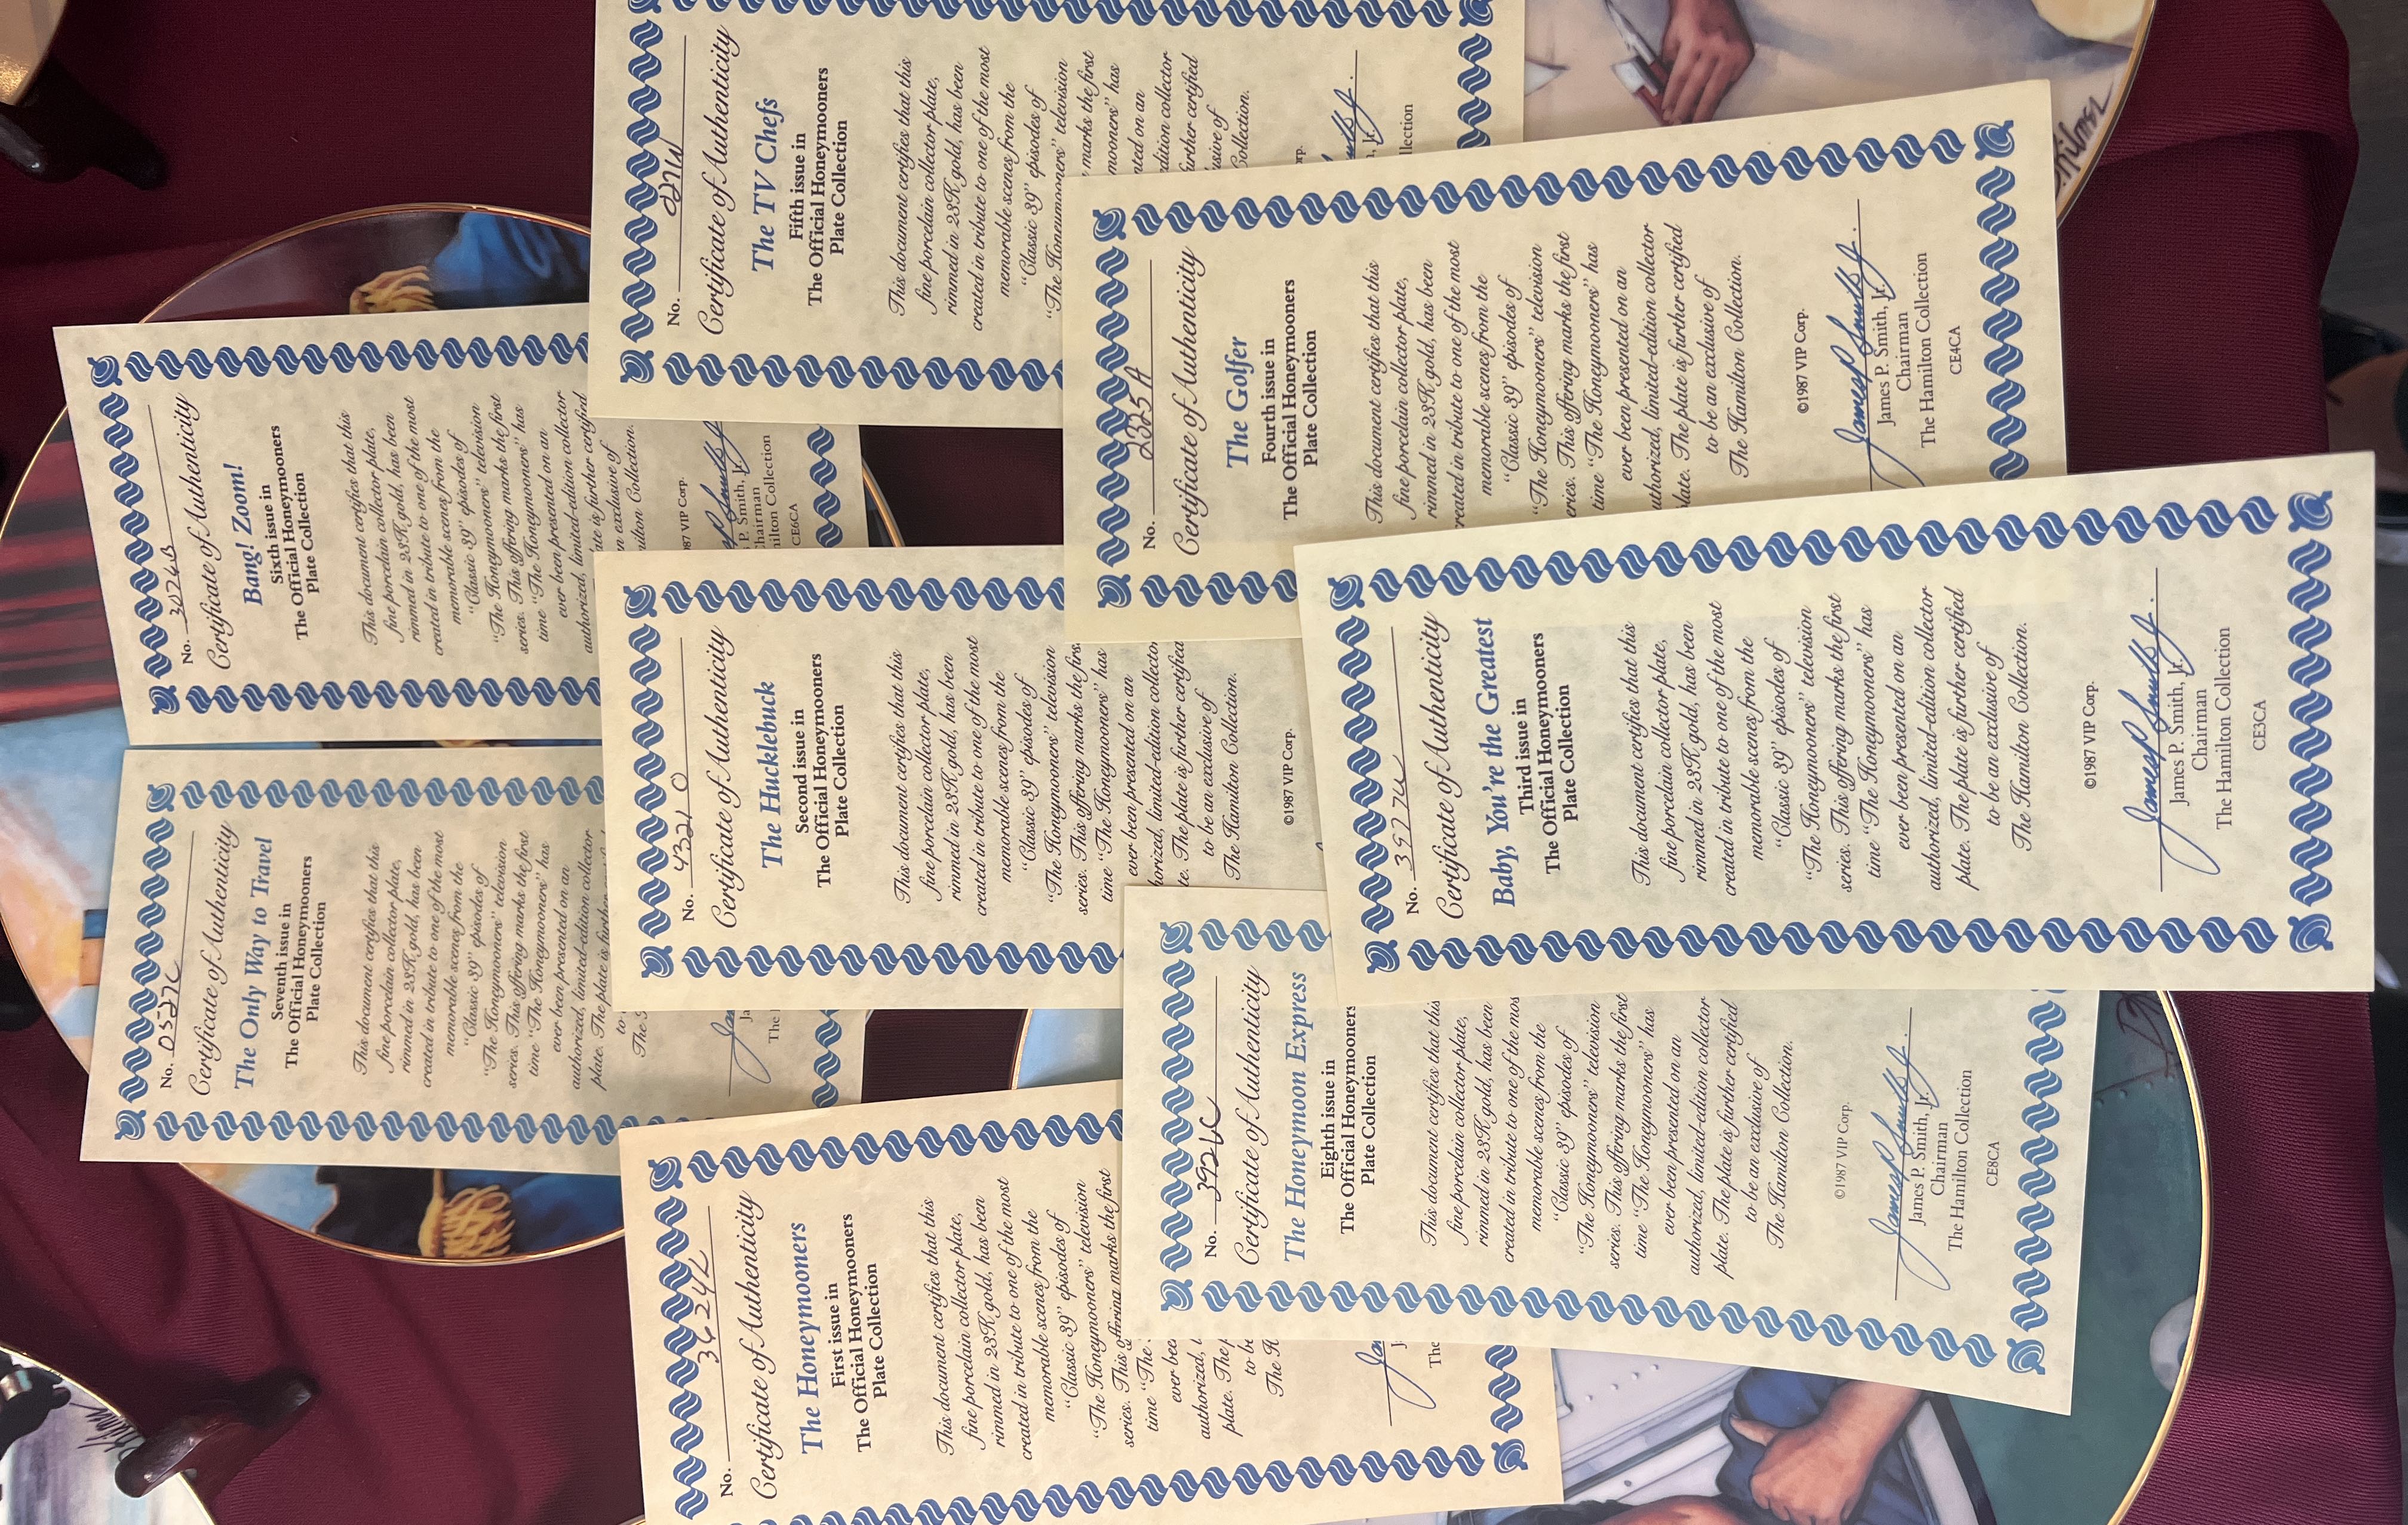 No. 0527C
Certificate of Authenticity
The Only Way to Travel
Seventh issue in
The Official Honeymooners
Plate Collection
This document certifies that this
fine porcelain collector plate,
rimmed in 23K gold, has been
created in tribute to one of the most
memorable scenes from the
"Classic 39" episodes of
"The Honeymooners" television
series. This offering marks the first
time "The Honeymooners" has
ever been presented on an
authorized, limited-edition collector
plate. The plate is further
to
The
No. 3024B
Certificate of Authenticity
Bang! Zoom!
Sixth issue in
The Official Honeymooners
Plate Collection
This document certifies that this
fine porcelain collector plate,
rimmed in 23K gold, has been
created in tribute to one of the most
memorable scenes from the
"Classic 39" episodes of
"The Honeymooners" television
series. This offering marks the first
time "The Honeymooners" has
ever been presented on an
authorized, limited-edition collector
is further certified
exclusive of
Collection.
VIP Corp.
P. Smith, Jr.
Chairman
Hamilton Collection
CE6CA
No. 3624L
Certificate of Authenticity
The Honeymooners
First issue in
The Official Honeymooners
Plate Collection
This document certifies that this
fine porcelain collector plate,
rimmed in 23K gold, has been
created in tribute to one of the most
memorable scenes from the
"Classic 39" episodes of
"The Honeymooners" television
series. This offering marks the first
time "The
ever
authorized,
plate. The
to be
The
The
No. 4321 O
Certificate of Authenticity
The Hucklebuck
Second issue in
The Official Honeymooners
Plate Collection
This document certifies that this
fine porcelain collector plate,
rimmed in 23K gold, has been
created in tribute to one of the most
memorable scenes from the
"Classic 39" episodes of
"The Honeymooners" television
series. This offering marks the first
time "The Honeymooners" has
ever been presented on an
limited-edition collector
The plate is further certified
to be an exclusive of
The Hamilton Collection.
©1987 VIP Corp.
No.
Certificate of Authenticity
The TV Chefs
Fifth issue in
The Official Honeymooners
Plate Collection
This document certifies that this
fine porcelain collector plate,
rimmed in 23K gold, has been
created in tribute to one of the most
memorable scenes from the
"Classic 39" episodes of
"The Honeymooners" television
marks the first
has
on an
collector
further certified
of
Collection.
Corp.
Jr.
No. 3926C
Certificate of Authenticity
The Honeymoon Express
Eighth issue in
The Official Honeymooners
Plate Collection
This document certifies that this
fine porcelain collector plate,
rimmed in 23K gold, has been
created in tribute to one of the most
memorable scenes from the
"Classic 39" episodes of
"The Honeymooners" television
series. This offering marks the first
time "The Honeymooners" has
ever been presented on an
authorized, limited-edition collector
plate. The plate is further certified
to be an exclusive of
The Hamilton Collection.
©1987 VIP Corp.
James P Smith Jr.
James P. Smith, Jr.
Chairman
The Hamilton Collection
CE8CA
No. 3977U
Certificate of Authenticity
Baby, You're the Greatest
Third issue in
The Official Honeymooners
Plate Collection
This document certifies that this
fine porcelain collector plate,
rimmed in 23K gold, has been
created in tribute to one of the most
memorable scenes from the
"Classic 39" episodes of
"The Honeymooners" television
series. This offering marks the first
time "The Honeymooners" has
ever been presented on an
authorized, limited-edition collector
plate. The plate is further certified
to be an exclusive of
The Hamilton Collection.
©1987 VIP Corp.
James P Smith Jr.
James P. Smith, Jr.
Chairman
The Hamilton Collection
CE3CA
No. 2325A
Certificate of Authenticity
The Golfer
Fourth issue in
The Official Honeymooners
Plate Collection
This document certifies that this
fine porcelain collector plate,
rimmed in 23K gold, has been
created in tribute to one of the most
memorable scenes from the
"Classic 39" episodes of
"The Honeymooners" television
series. This offering marks the first
time "The Honeymooners" has
ever been presented on an
authorized, limited-edition collector
plate. The plate is further certified
to be an exclusive of
The Hamilton Collection.
©1987 VIP Corp.
James P Smith Jr.
James P. Smith, Jr.
Chairman
The Hamilton Collection
CE4CA